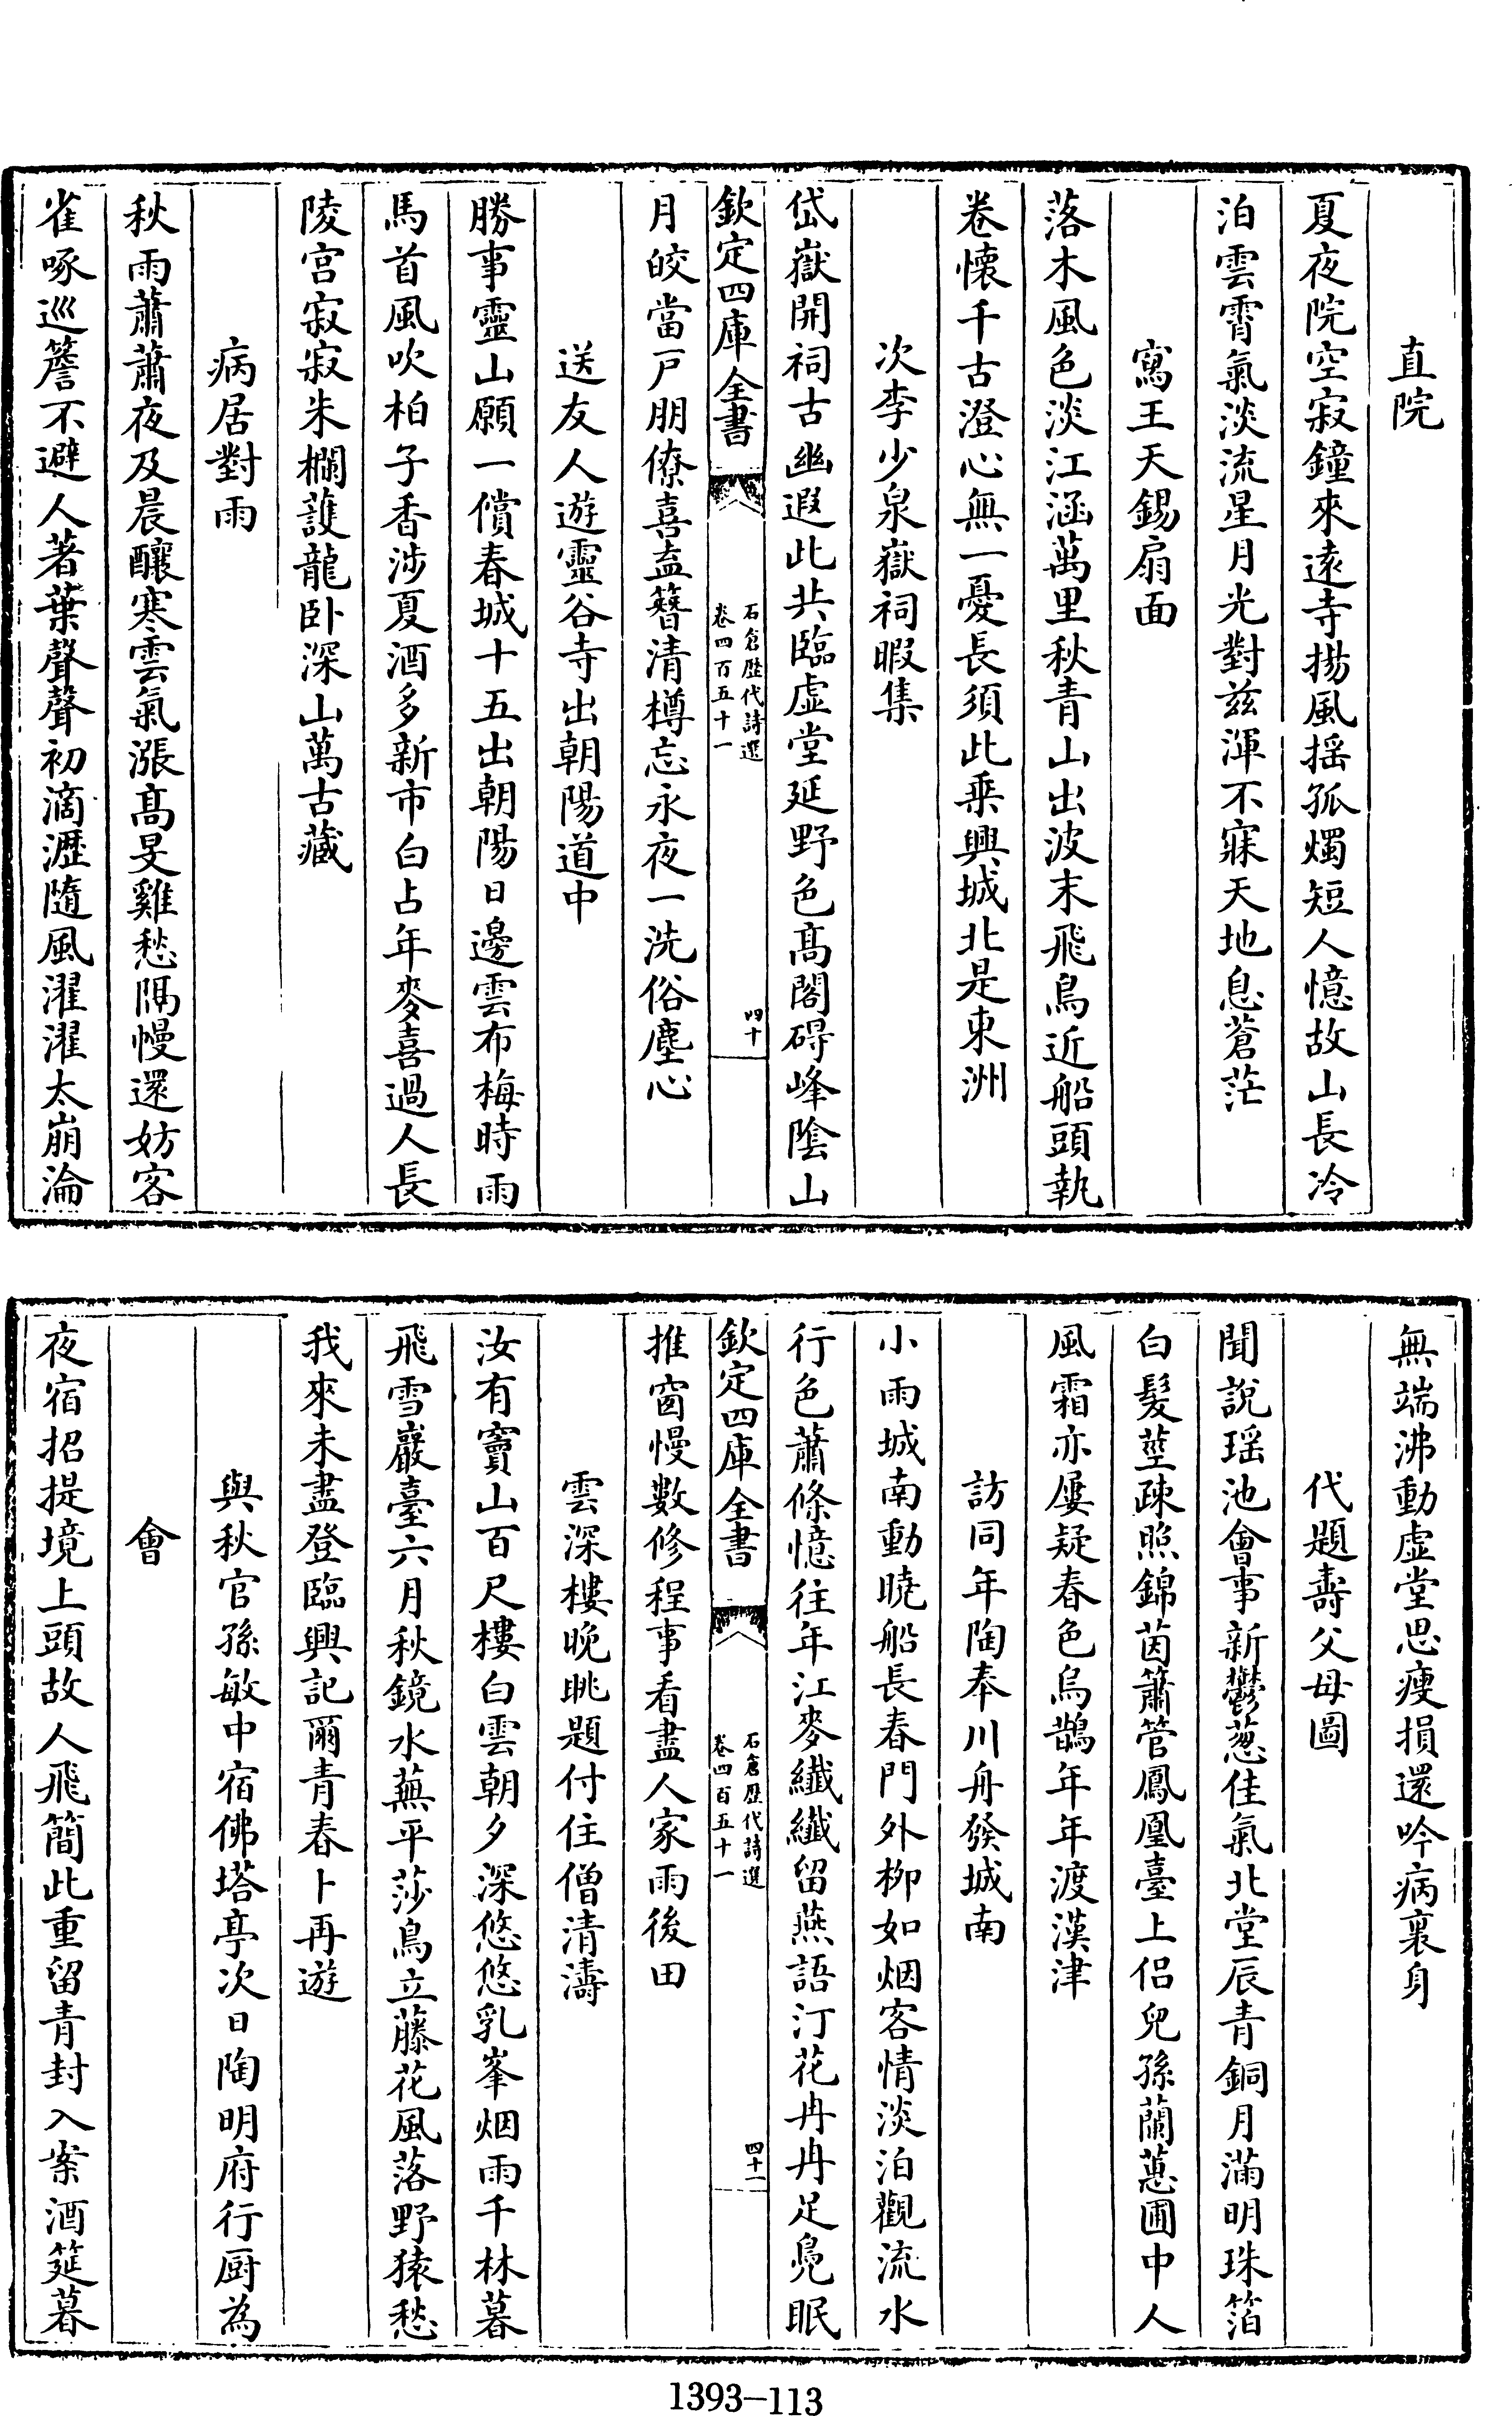 直院
夏夜院空寂鐘來遠寺揚風揺孤燭短人憶故山長冷
泊雲霄氣淡流星月光對兹渾不寐天地息蒼茫
寫王天錫扇面
落木風色淡江涵萬里秋青山出波末飛鳥近船頭執
卷懐千古澄心無一憂長須此乗興城北是東洲
次李少泉嶽祠暇集
岱嶽開祠古幽遐此共臨虚堂延野色髙閣碍峰隂山
欽定四庫全書
石倉歴代詩選
卷四百五十一
四十
月皎當戸朋僚喜盍簪清樽忘永夜一洗俗塵心
送友人遊靈谷寺出朝陽道中
勝事靈山願一償春城十五出朝陽日邊雲布梅時雨
馬首風吹柏子香渉夏酒多新市白占年麥喜過人長
陵宫寂寂朱欄䕶龍卧深山萬古藏
病居對雨
秋雨蕭蕭夜及晨釀寒雲氣漲髙旻雞愁隔慢還妨客
雀啄巡簷不避人著葉聲聲初滴瀝隨風濯濯太崩淪
無端沸動虚堂思瘦損還吟病裏身
代題壽父母圖
聞說瑶池會事新鬱葱佳氣北堂辰青銅月滿明珠箔
白髮莖疎照錦茵簫管鳳凰臺上侣兒孫蘭蕙圃中人
風霜亦屢疑春色烏鵲年年渡漢津
訪同年陶奉川舟發城南
小雨城南動曉船長春門外柳如烟客情淡泊觀流水
行色蕭條憶往年江麥纎纎留燕語汀花冉冉足鳬眠
欽定四庫全書
石倉歴代詩選
卷四百五十一
四十一
推窗慢數修程事看盡人家雨後田
雲深樓晚眺題付住僧清濤
汝有竇山百尺樓白雲朝夕深悠悠乳峯烟雨千林暮
飛雪巖臺六月秋鏡水蕪平莎鳥立藤花風落野猿愁
我來未盡登臨興記爾青春卜再遊
與秋官孫敏中宿佛塔亭次日陶明府行厨為
會
夜宿招提境上頭故人飛簡此重留青封入案酒筵暮
1393-113